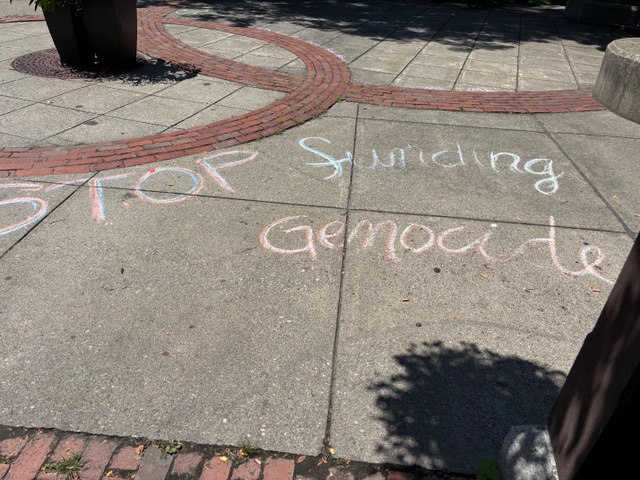 STOP funding
Genocide